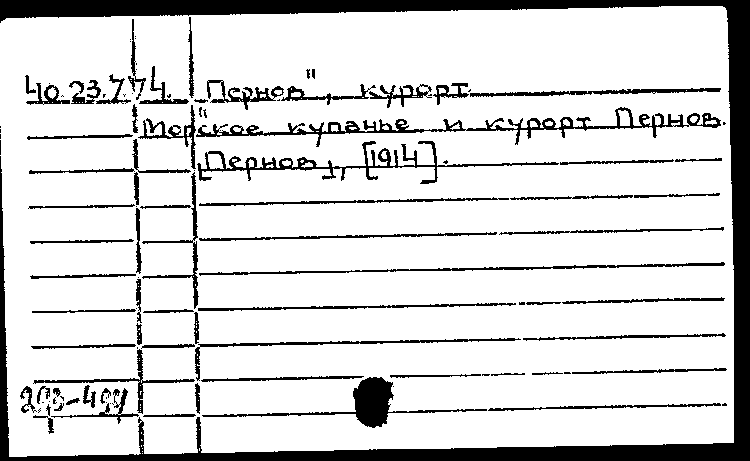 40.23.7.74. "Пернов", курорт.
Морское купанье и курорт Пернов.
[Пернов], [1914].